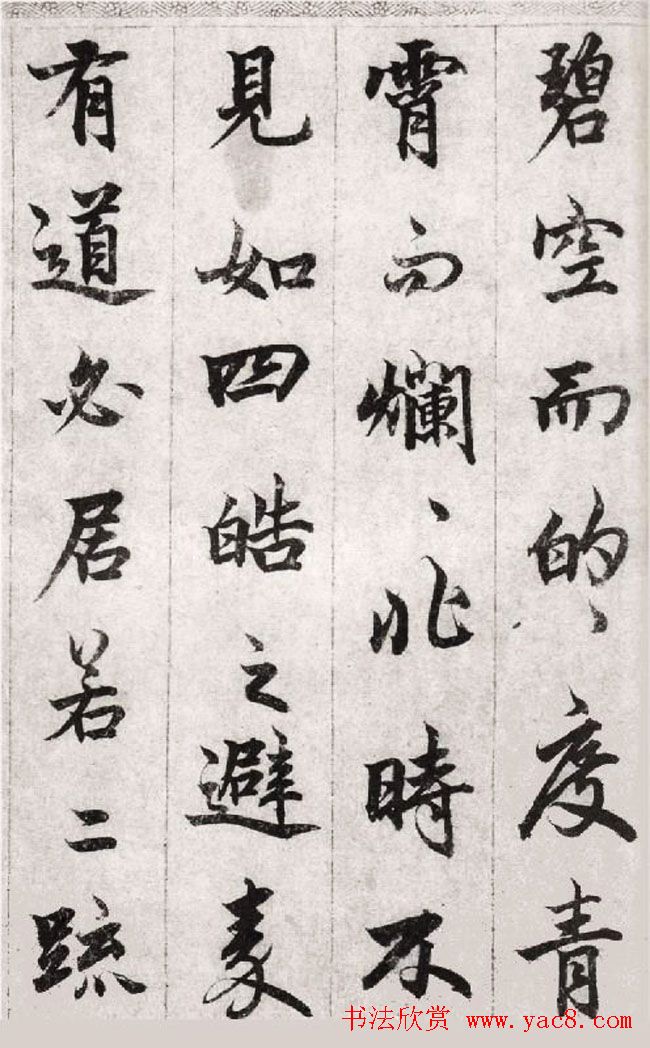 碧空而的〻度青
霄而爛〻非時不
見如四皓之避秦
有道必居若二疏
书法欣赏 www.yac8.com